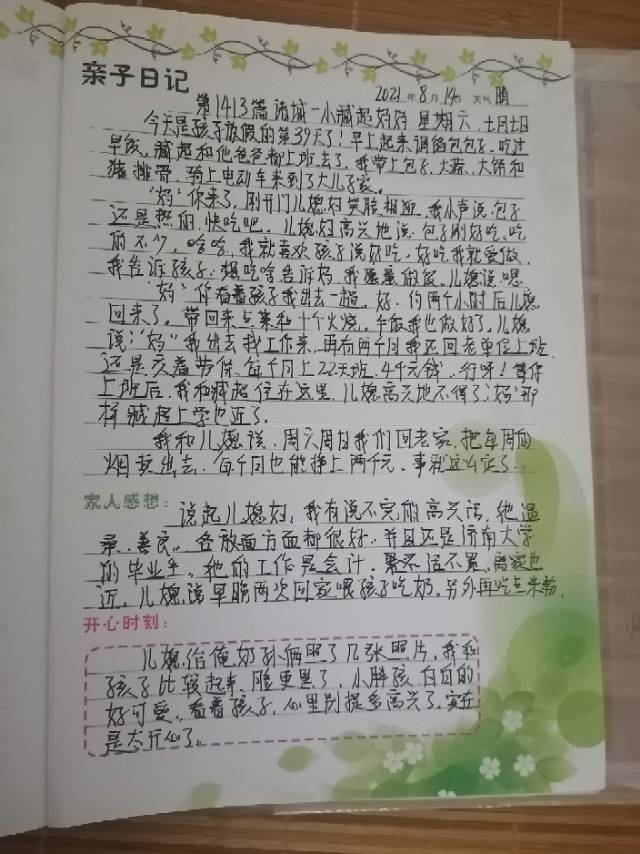 亲子日记
2021年8月14日 天气 晴
第1413篇 诸城一小臧起妈妈 星期六 七月七日
今天是孩子放假的第39天了！早上起来调馅包包子，吃过
早饭，臧起和他爸爸都上班去了。我带上包子、大蒜、大饼和
猪排骨，骑上电动车来到了大儿子家。
“妈”你来了，刚开门儿媳妇笑脸相迎，我小声说包子
还是热的，快吃吧。儿媳妇高兴地说：包子刚好吃，吃
的不少，哈哈，我就喜欢孩子说好吃，好吃我就爱做，
我告诉孩子：想吃啥告诉妈，我愿意做饭。儿媳说嗯
“妈”你看着孩子我出去一趟，好，约两个小时后儿媳
回来了。带回来点菜和十个火烧，午饭我也做好了。儿媳
说：“妈”我出去找工作来，再有两个月我还回老单位上班，
还是交着劳保，每个月上22天班，4千元钱，行呀！等你
上班后，我和臧起住在这里，儿媳高兴地不得了：“妈”那
样臧起上学也近了。
我和儿媳说，周六周日我们回老家，把每周的
烟卖出去，每个月也能挣上两千元，事就这么定了..
家人感想：
说起儿媳妇，我有说不完的高兴话，他温
柔、善良，各放面方面都很好，并且还是济南大学
的毕业生，他的工作是会计，累不活不累，离家也
近，儿媳说早晚两次回家喂孩子吃奶，另外再吃点米粉，
开心时刻：
儿媳给俺奶孙俩照了几张照片，我和
孩子比较起来，脸更黑了，小胖孩白白的
好可爱，看着孩子，心里别提多高兴了，实在
是太开心了。